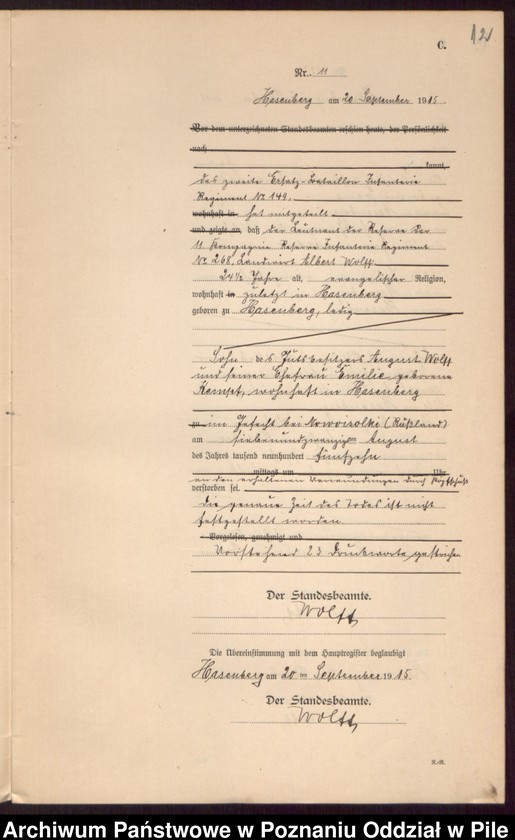 12
C.
Nr. 11
Hasenberg am 20 September 1915.
Vor dem unterzeichneten Standesbeamten erschien heute, der Persönlichkeit
nach
kannt,
das zweite Ersatz-Bataillon Infanterie
Regiment No 149.
wohnhaft in hat mitgeteilt
und zeigte an, daß der Leutnant der Reserve der
11 Kompagnie Reserve Infanterie Regiment
No 268, Landwirt Elbert Wolff
24½ Jahre alt, evangelischer Religion,
wohnhaft in zuletzt in Hasenberg
geboren zu Hasenberg, ledig
Sohn des Gutsbesitzers August Wolff
und seiner Ehefrau Emilie geborene
Kempf, wohnhaft in Hasenberg
zu im Gefecht bei Nowosolki (Rußland)
am siebenundzwanzigsten August
des Jahres tausend neunhundert fünfzehn
mittags um Uhr
an den erhaltenen Verwundungen durch Kopfschuß
verstorben sei.
Die genaue Zeit des Todes ist nicht
festgestellt worden
Vorgelesen, genehmigt und
Vorstehend 23 Druckworte gestrichen
Der Standesbeamte.
Wolff
Die Übereinstimmung mit dem Hauptregister beglaubigt
Hasenberg am 20 ten September 1915.
Der Standesbeamte.
Wolff
Archiwum Państwowe w Poznaniu Oddział w Pile